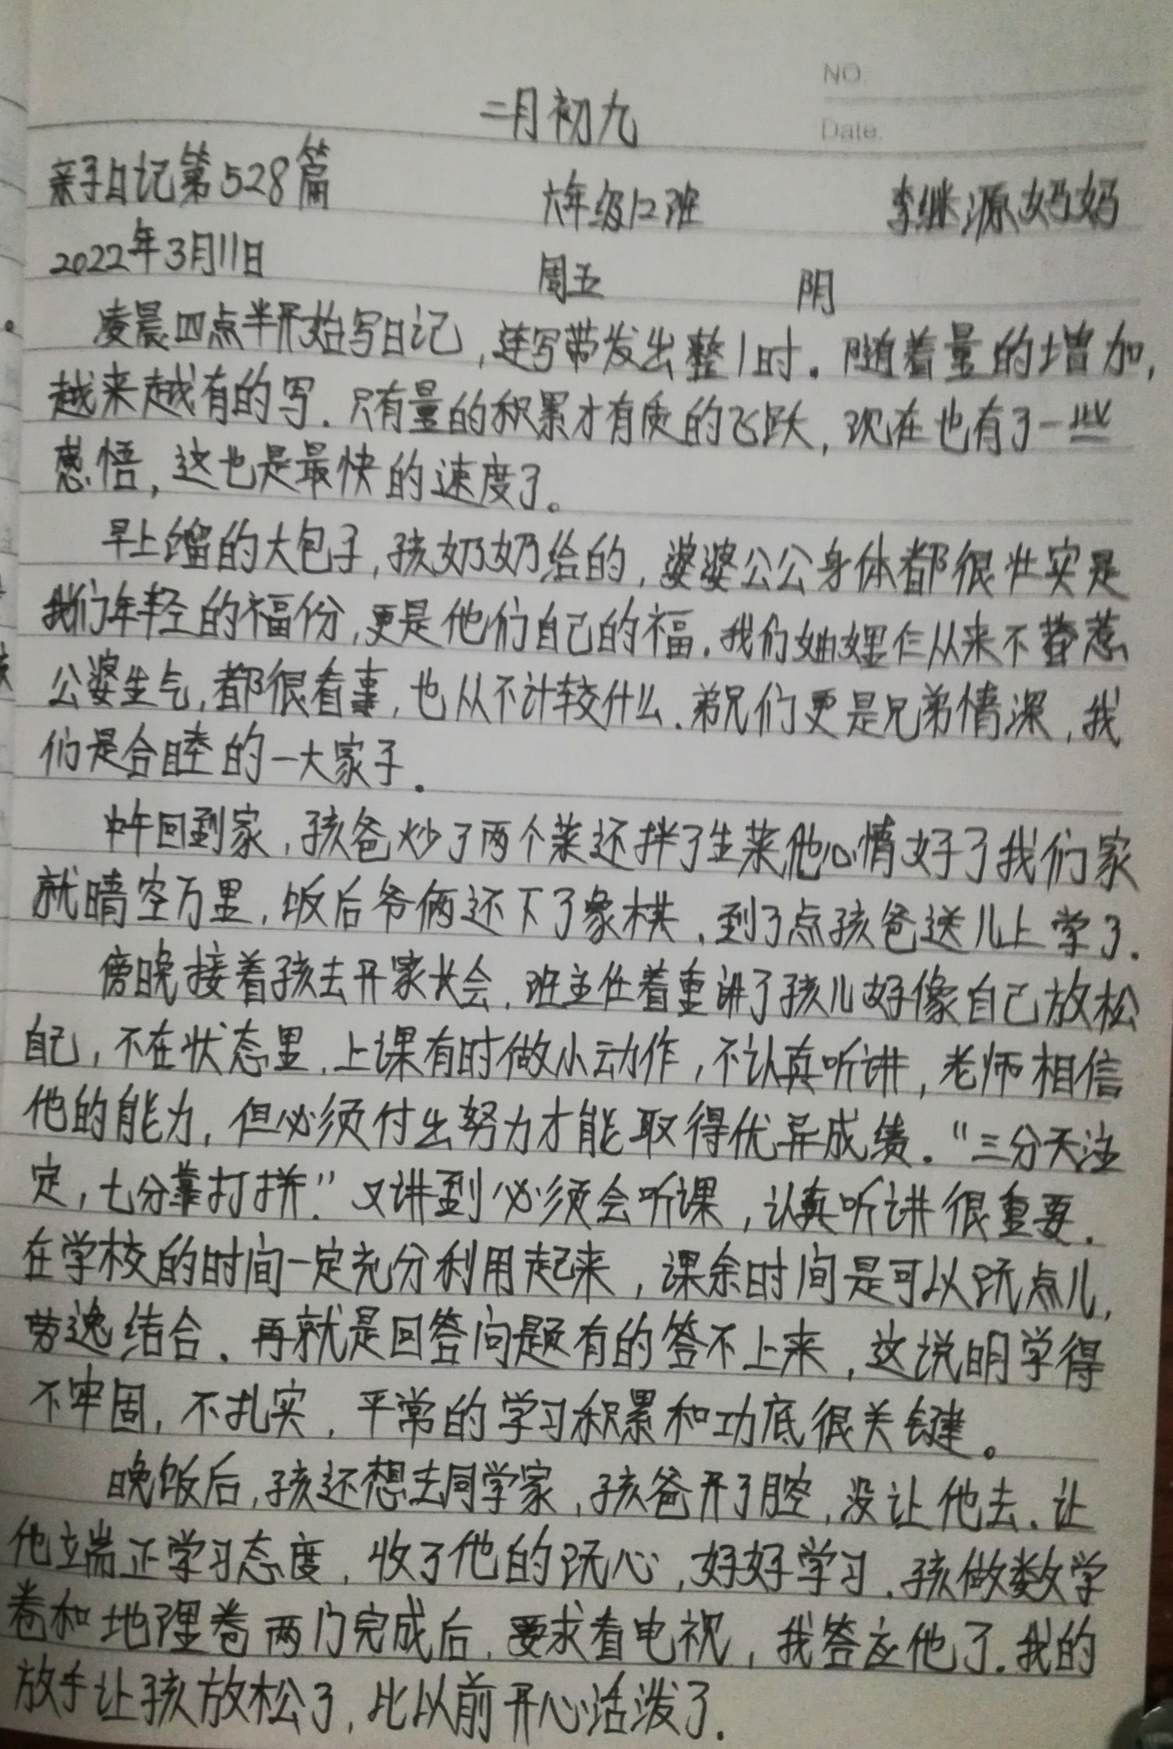 NO.
二月初九
Date.
亲子日记第528篇 六年级12班 李继源妈妈
2022年3月11日 周五 阴
凌晨四点半开始写日记,连写带发出整1时。随着量的增加,
越来越有的写.只有量的积累才有质的飞跃,现在也有了一些
感悟,这也是最快的速度了。
早上馏的大包子,孩奶奶给的,婆婆公公身体都很壮实是
我们年轻的福份,更是他们自己的福.我们妯娌仨从来不惹
公婆生气,都很看事,也从不计较什么.弟兄们更是兄弟情深,我
们是合睦的一大家子.
中午回到家,孩爸炒了两个菜还拌了生菜,他心情好了我们家
就晴空万里,饭后爷俩还下了象棋,到了点孩爸送儿上学了.
傍晚接着孩去开家长会,班主任着重讲了孩儿好像自己放松
自己,不在状态里,上课有时做小动作,不认真听讲,老师相信
他的能力,但必须付出努力才能取得优异成绩。“三分天注
定,七分靠打拼”又讲到必须会听课,认真听讲很重要.
在学校的时间一定充分利用起来,课余时间是可以玩点儿,
劳逸结合.再就是回答问题有的答不上来,这说明学得
不牢固,不扎实,平常的学习积累和功底很关键。
晚饭后,孩还想去同学家,孩爸开了腔,没让他去.让
他端正学习态度,收了他的玩心,好好学习.孩做数学
卷和地理卷两门完成后,要求看电视,我答应他了.我的
放手让孩放松了,比以前开心活泼了.